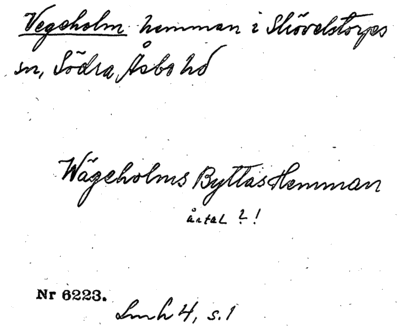 Vegeholm hemman i Skövelstorps
sn, Södra Åsbo hd
Wägeholms Byttas Hemman
årtal ? !
Nr 6223.
Lmh 4, s. 1